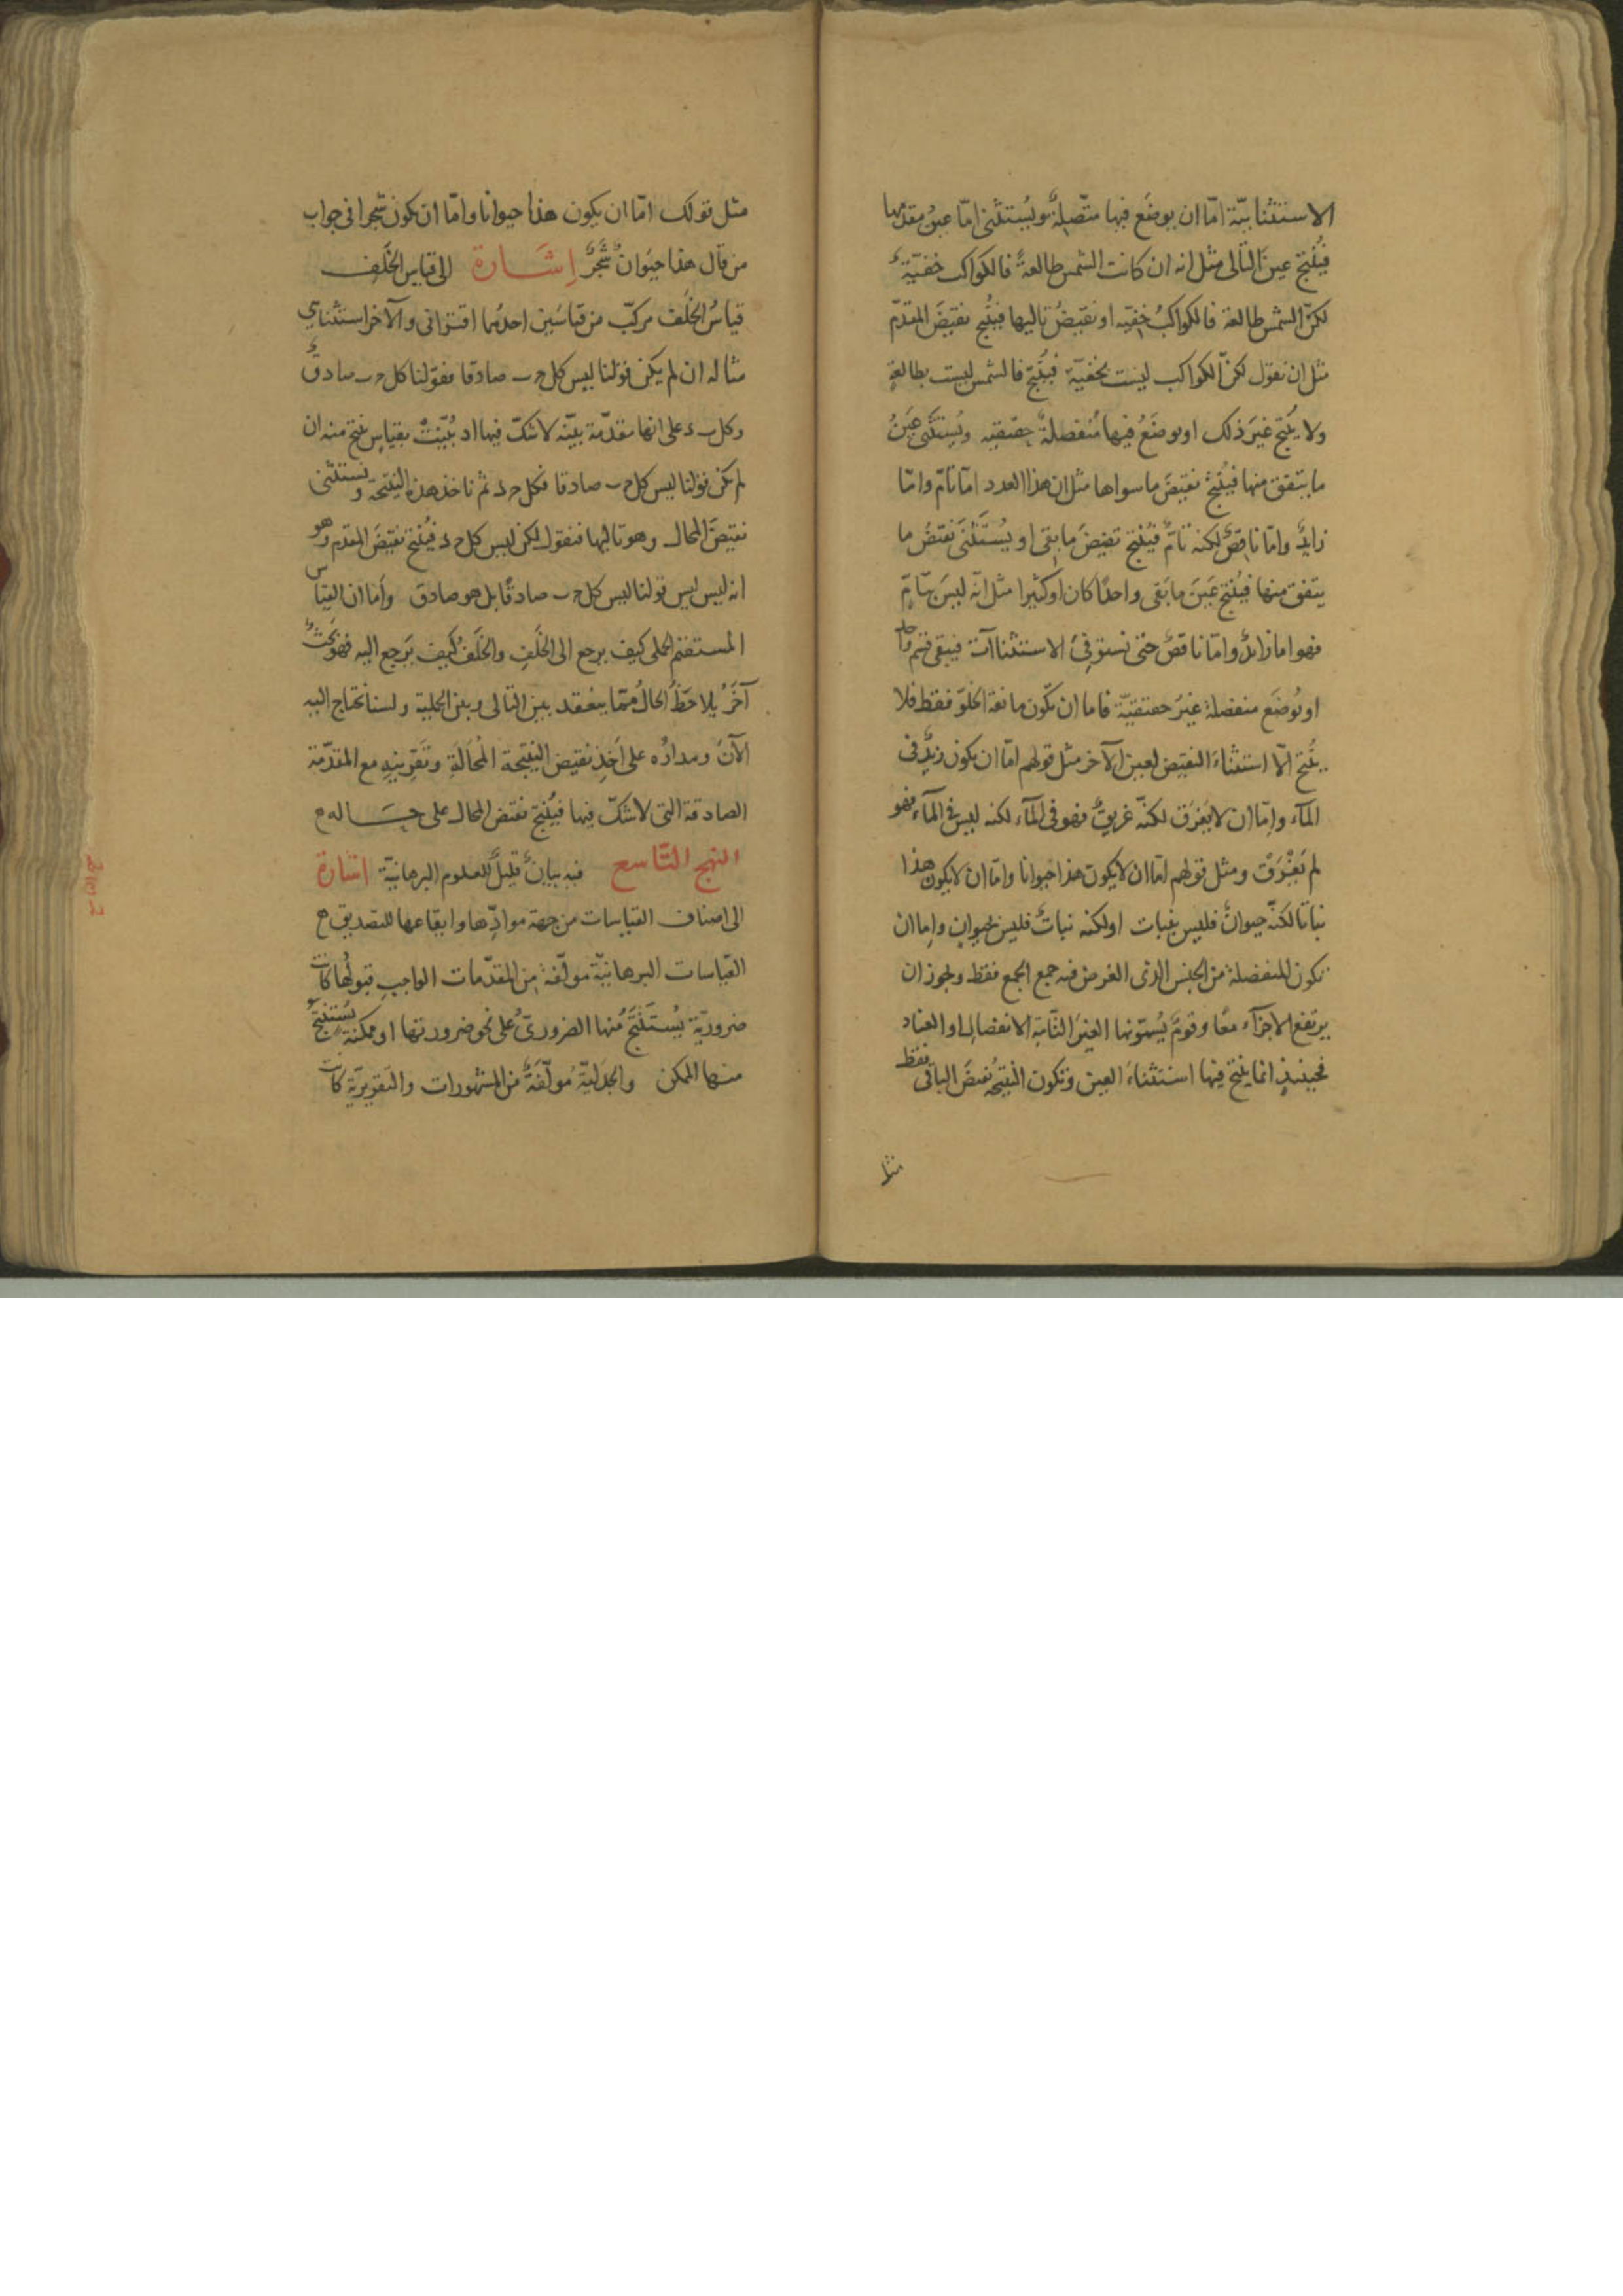 الاستثنائيّة امّا ان يوضَع فيها متّصلةٌ ويُستثنى امّا عينُ مقدّمها
فيُنتِج عينَ التالى مثل انه ان كانت الشمس طالعةً فالكواكب خفيّةٌ
لكنّ الشمس طالعة فالكواكبُ خفيّه او نقيضُ تاليها فيُنتج نقيضَ المقدّم
مثل ان نقول لكنّ الكواكب ليست بخفيّة فيُنتج فالشمس ليست بطالعةٍ
ولا يُنتج غيرَ ذلك او يوضَعُ فيها مُنفصلةٌ حقيقيه ويُستثنى عينُ
ما يتفق منها فيُنتج نقيضَ ما سواها مثل ان هذا العدد امّا تامّ وامّا
زايدٌ وامّا ناقصٌ لكنه تامٌّ فيُنتج نقيضَ ما بقى او يُستَثنَى نقيضُ ما
يتفق منها فيُنتج عَينَ ما بَقى واحدًا كان او كثيرا مثل انّه ليسَ بتامٍّ
فهو اما زائدٌ وامّا ناقصٌ حتى تستوفىَ الاستثناآت فيبقى قسم واحد
او يُوضَع منفصلة غيرُ حقيقيّة فاما ان تكون مانعة الخلوّ فقط فلا
يُنتج الّا استثناءَ النقيض لعين الآخر مثل قولهم امّا ان يكون زيدٌ فى
المآء وامّا ان لا يَغرَق لكنّه غريقٌ فهو فى المآء لكنه ليس فى المآء فهو
لم يَغْرَقْ ومثل قولهم امّا ان لا يكون هذا حيوانا وامّا ان لا يكون هذا
نباتا لكنّه حيوانٌ فليس بنبات او لكنه نباتٌ فليس بحيوان واما ان
تكون المنفصلة من الجنس الذى الغرض فيه جمع الجمع فقط ويجوز ان
يرتفع الاجزآء معًا وقومٌ يُسمّونها الغيرَ التّامةِ الانفصال او العناد
فحينئذٍ انما ينتج فيها استثناءَ العين وتكون النتيجةُ نقيضَ الباقى فقط
مثل
مثل قولك امّا ان يكون هذا حيوانا وامّا ان يكون شجرا فى جواب
من قال هذا حيَوانٌ شَجَرٌ إشَارة الى قياس الخَلف
قياسُ الخُلف مركّب من قياسَين احدُهما اقترانى والآخر استثنائي
مثاله ان لم يكن قولنا ليس كل ج ب صادقا فقولنا كل ج ب صادقٌ
وكل ب د على انها مقدّمة بيّنه لا شكّ فيها او بُيّنتْ بقياسٍ ينتج منه ان
لم يكن قولنا ليس كل ج ب صادقا فكل ج د ثم ناخذ هذه النتيجة ونستثنى
نقيضَ المحال وهو تاليها فنقول لكن ليس كل ج د فيُنتج نقيضَ المقدم وهو
انه ليس ليس قولنا ليس كل ج ب صادقًا بل هو صادق وأما ان القياس
المستقيم الحملى كيف يرجع الى الخَلفِ والخَلفُ كيف يَرجع اليه فهو بَحثٌ
آخَرُ يُلاحَظُ الحالُ ممّا ينعَقد بين التالى وبين الحملية ولسنا نحتاج اليه
الآنَ ومدارُه على أخذِ نقيض النتيجة المُحالَةِ وتَقرِينِهِ مع المقدّمة
الصادقة التى لا شكّ فيها فيُنتج نقيض المحال على حِسَاله
النهج التّاسع فيه بيانٌ قليلٌ للعلوم البرهانيّة اشارة
الى اصناف القياسات من جهة موادِّها وايقاعها للتصديق
القياسات البرهانيّة مولّفة من المقدّمات الواجب قبولُها كانت
ضروريّة يُستَنتَجُ منها الضرورىّ على نحو ضرورتها او ممكنة يُستنتجُ
منها الممكن والجدليّة مُولّفةٌ من المشهورات والتقريريّة كانت